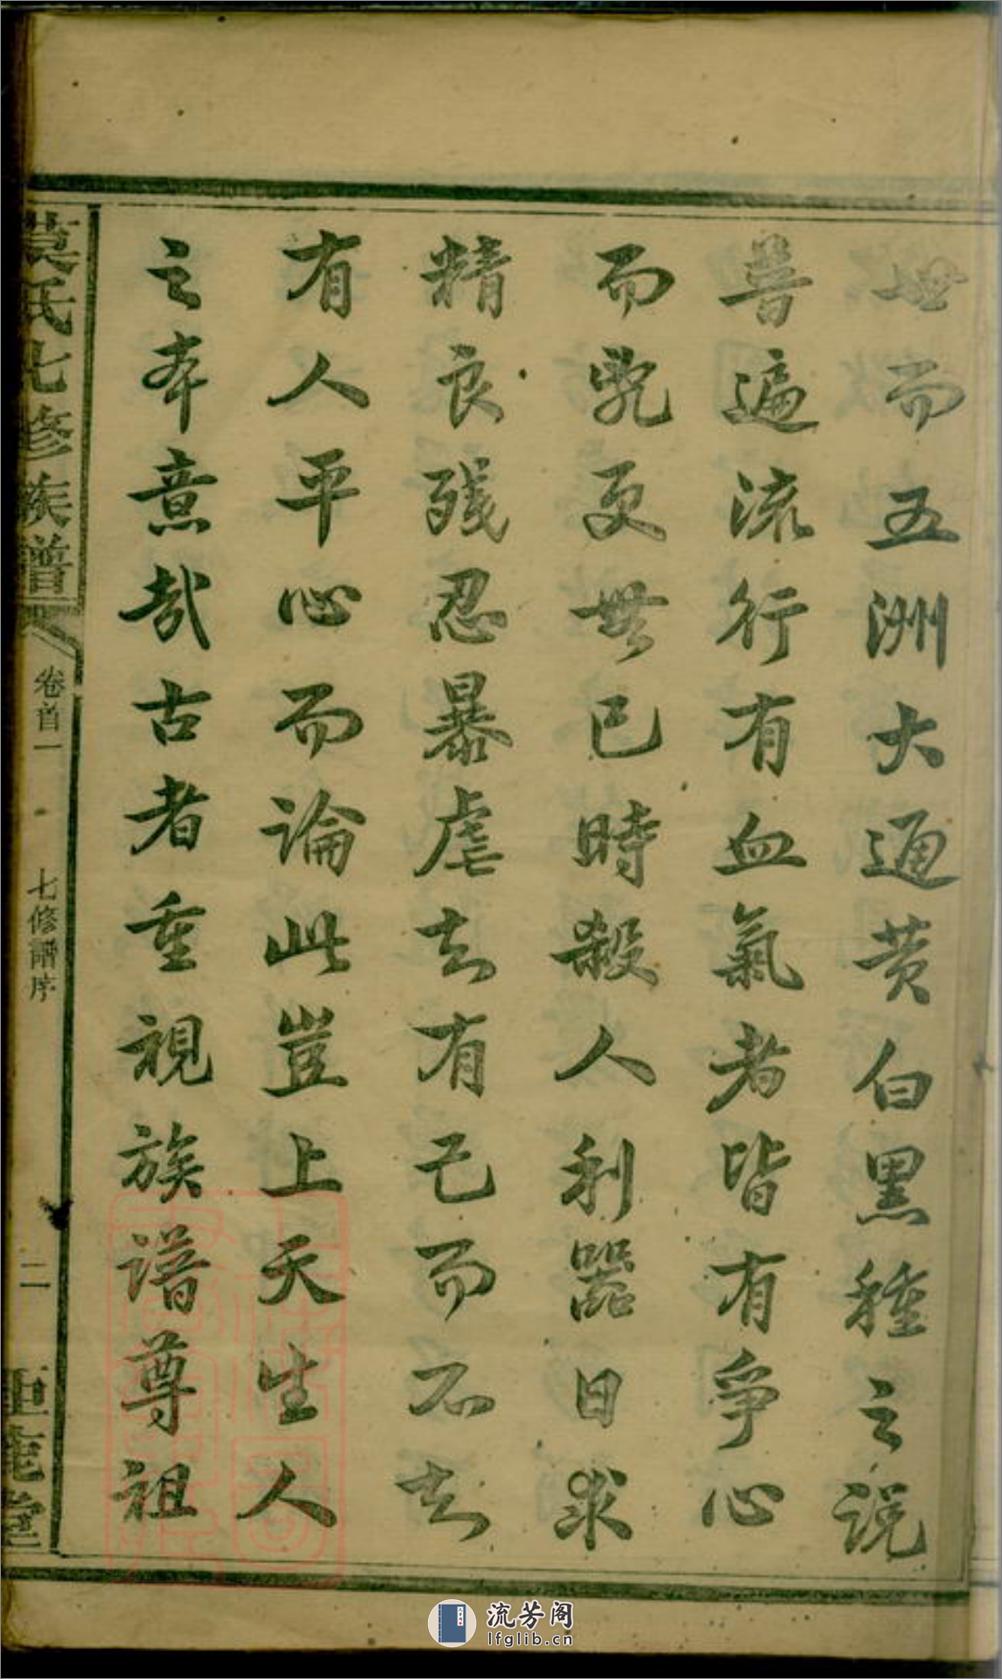 世而五洲大通黄白黑種之説
普遍流行有血氣者皆有爭心
而亂更無已時殺人利器日求
精良殘忍暴虐去有己而不去
有人平心而論此豈上天生人
之本意哉古者重視族譜尊祖
莫氏七修族譜
卷首一
七修譜序
二
鉅鹿堂
流芳阁
lfglib.cn